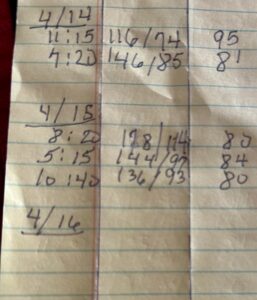 4/14
11:15 116/74 95
7:20 146/85 81
4/15
8:20 178/114 80
5:15 144/97 84
10:40 136/93 80
4/16